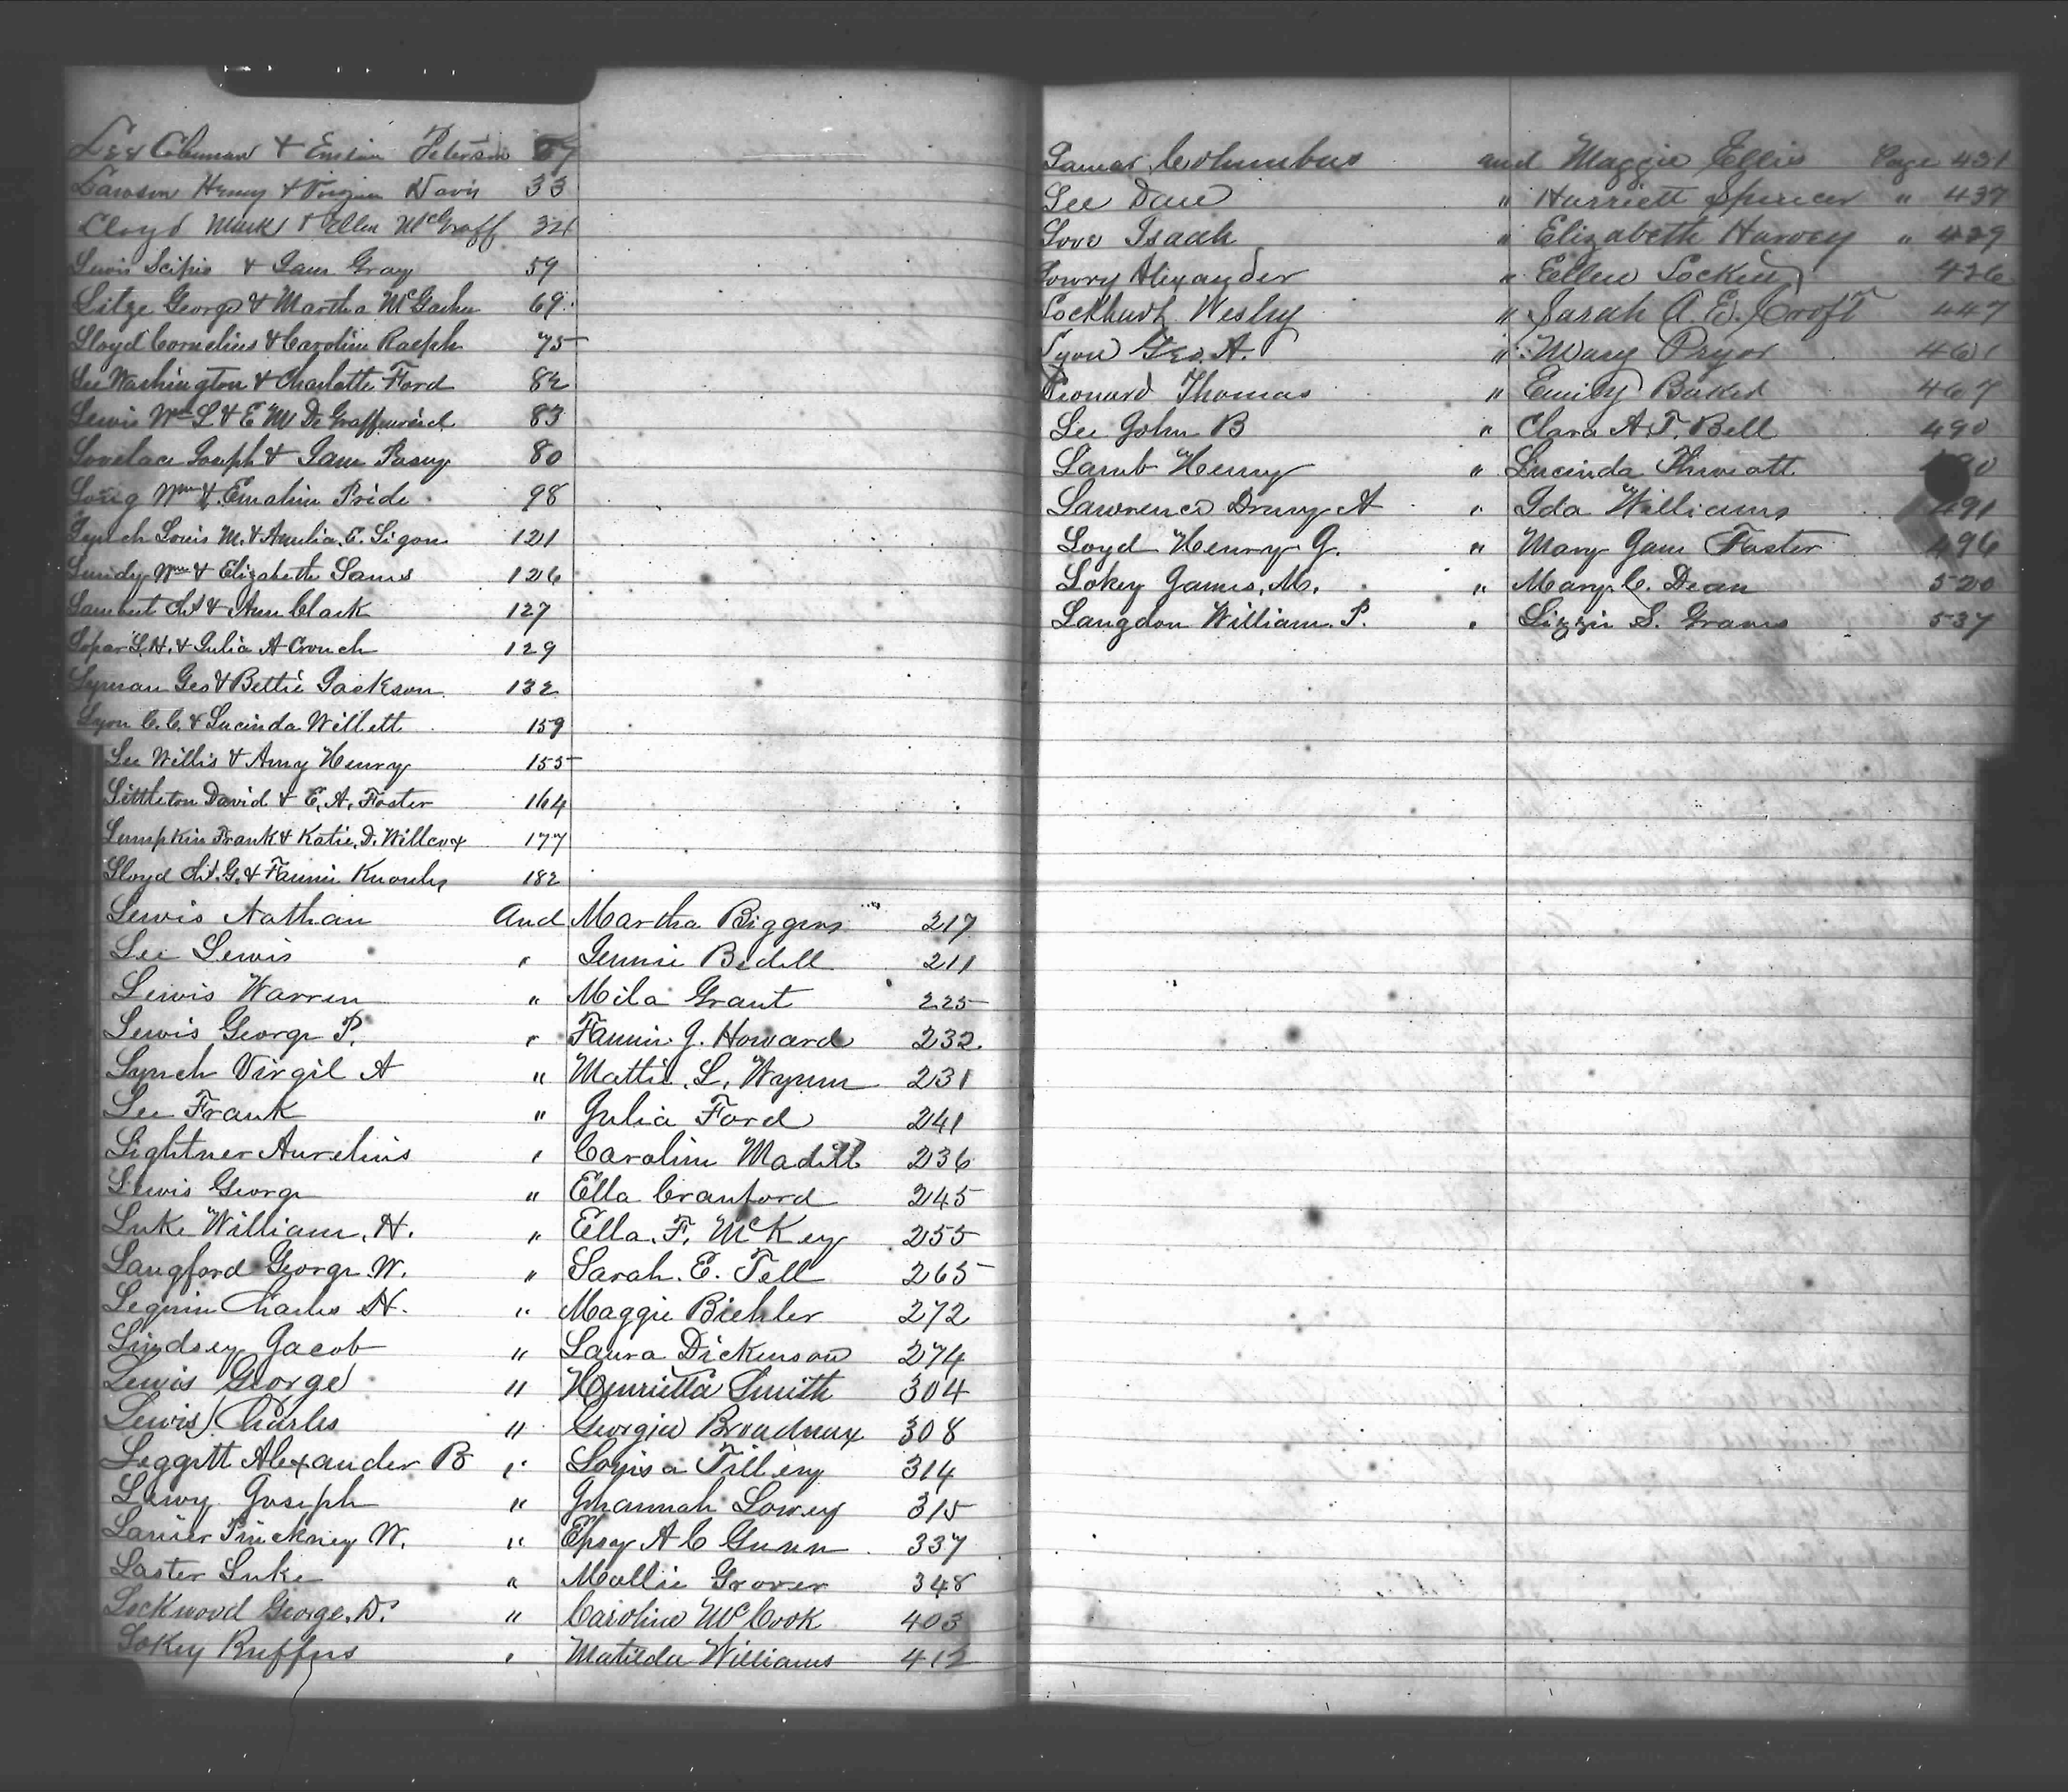 Lee Coleman & Emeline Peterson 59
Lawson Henry & Virginia Davis 33
Lloyd Mark & Ellen McGraff 34
Lewis Scipio & Jane Gray 59
Litze George & Martha McGachee 69
Lloyd Cornelius & Caroline Raeph 75
Lee Washington & Charlotte Ford 82
Lewis Wm L & E M De Graffenried 83
Lovelace Joseph & Jane Posey 80
Long Wm & Emaline Pride 98
Lynch Louis M. & Amelia E. Ligon 121
Lundy Wm & Elizabeth Sams 126
Lambert Chs & Ann Clark 127
Loper L. H. & Julia A Crouch 129
Lyman Geo & Bettie Jackson 132
Lyon C. C. & Lucinda Willett 159
Lee Willis & Amy Henry 155
Littleton David & E. A. Foster 164
Lumpkin Frank & Katie D. Willcox 177
Lloyd Chs. G. & Fannie Knowles 182
Lewis Nathan And Martha Biggers 217
Lee Lewis " Jennie Bedell 211
Lewis Warren " Mila Grant 225
Lewis George P. " Fannie J. Howard 232
Lynch Virgil A " Mattie L. Wynn 231
Lee Frank " Julia Ford 241
Lightner Aurelius " Caroline Madill 236
Lewis George " Ella Cranford 245
Luke William H. " Ella F. McKey 255
Langford George W. " Sarah E. Tell 265
Leguin Charles H. " Maggie Biehler 272
Lindsey Jacob " Laura Dickinson 274
Lewis George " Henrietta Smith 304
Lewis Charles " Georgia Broadnax 308
Leggett Alexander B " Louisa Tillery 314
Lewy Joseph " Johannah Lowey 315
Lanier Pinckney W. " Epsy A C Gunn 337
Laster Luke " Mollie Grover 348
Lockwood George D. " Caroline McCook 403
Lokey Ruffus " Matilda Williams 412
Lamar Columbus and Maggie Ellis Page 431
Lee Dave " Harriett Spencer " 437
Love Isaah " Elizabeth Harvey " 429
Lowry Alexander " Ellen Lockey 426
Lockhart Wesley " Sarah A. E. Croft 447
Lyon Geo. A. " Mary Pryor 461
Leonard Thomas " Emily Baker 467
Lee John B " Clara A. T. Bell 490
Lamb Henry " Lucinda Threeatt
Lawrence Drury A " Ida Williams 491
Loyd Henry G. " Mary Jane Foster 496
Lokey James M. " Mary C. Dean 520
Langdon William P. " Lizzie S. Graves 537